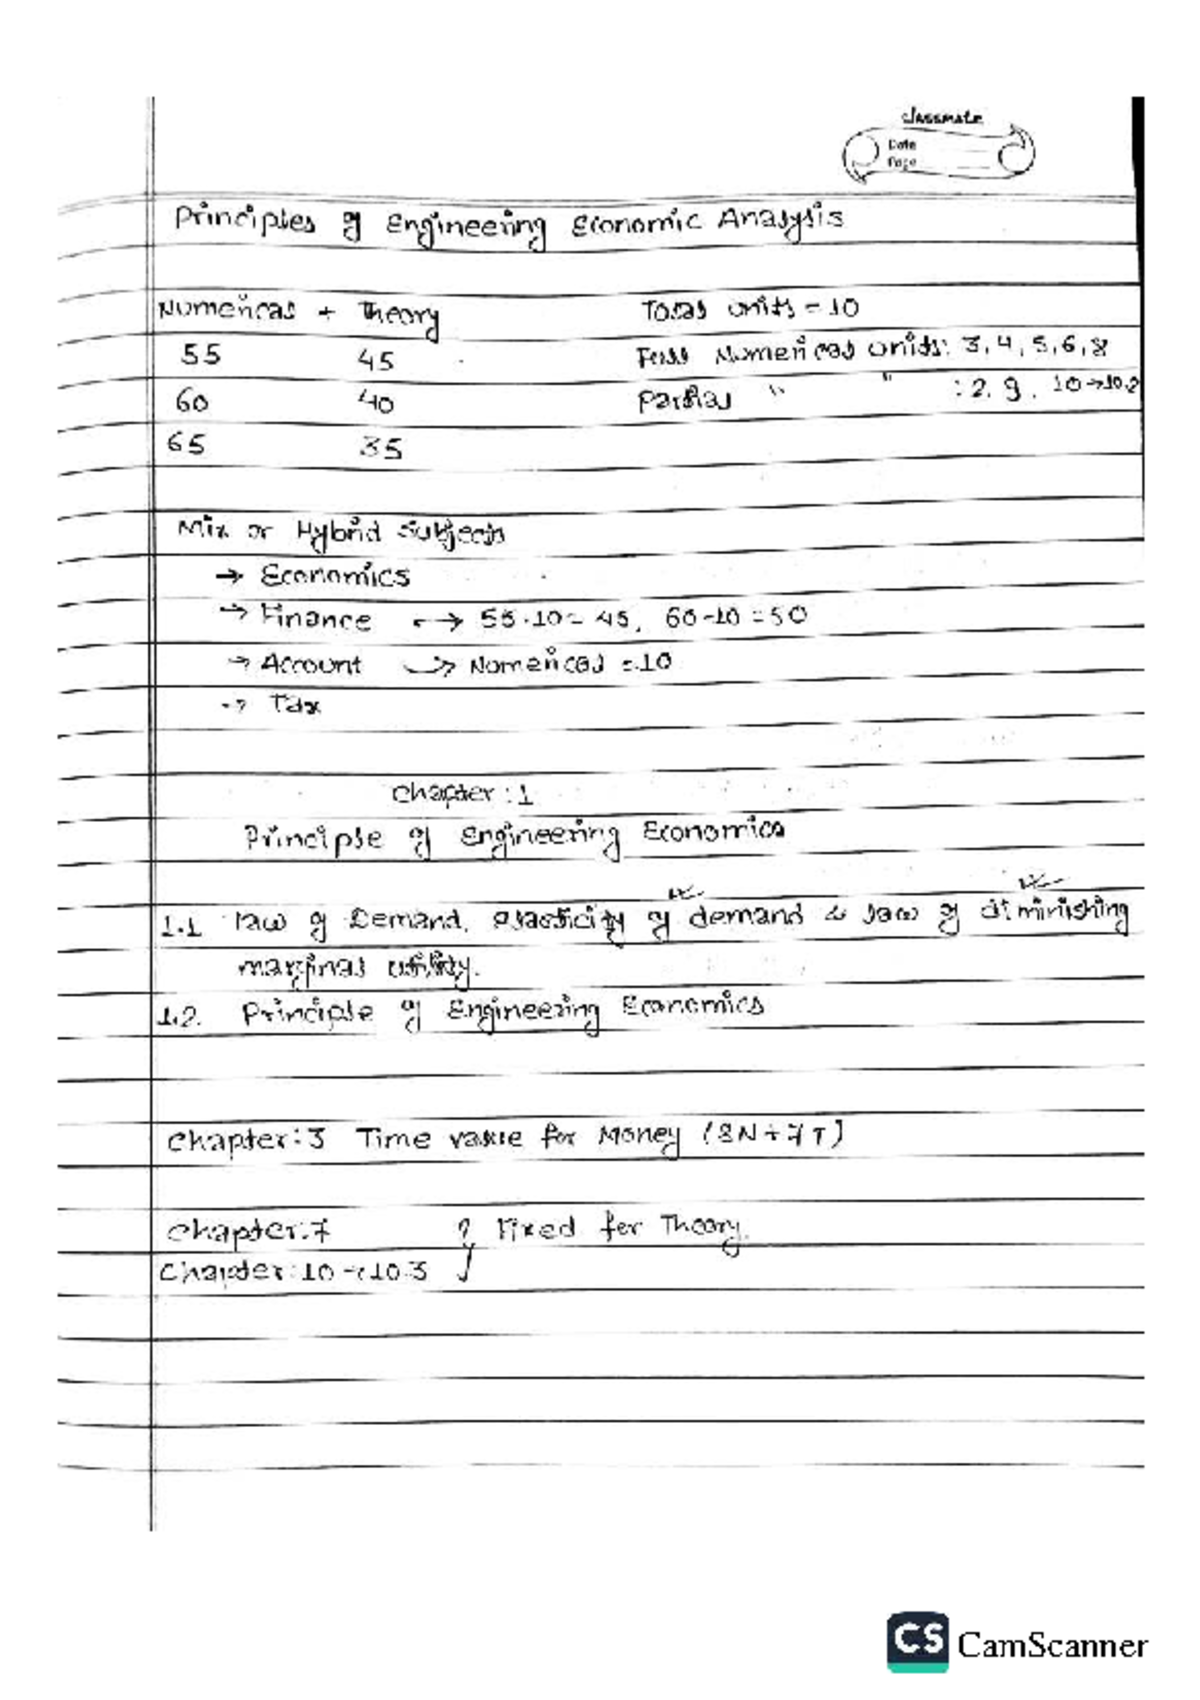 classmate
Date
Page
Principles of Engineering Economic Analysis
Numerical + Theory
Total units = 10
55 45
Full Numerical Units: 3, 4, 5, 6, 8
60 40
Partial " " : 2, 9, 10→10.2
65 35
Mix or Hybrid Subjects
→ Economics
→ Finance ↔ 55-10 = 45, 60-10 = 50
→ Account → Numerical = 10
→ Tax
Chapter : 1
Principle of Engineering Economics
1.1 Law of Demand, Elasticity of demand & law of diminishing
marginal utility.
1.2. Principle of Engineering Economics
Chapter: 3 Time value for Money (8N + 7T)
Chapter: 7 } Fixed for Theory.
Chapter: 10 → 10.3
CS CamScanner